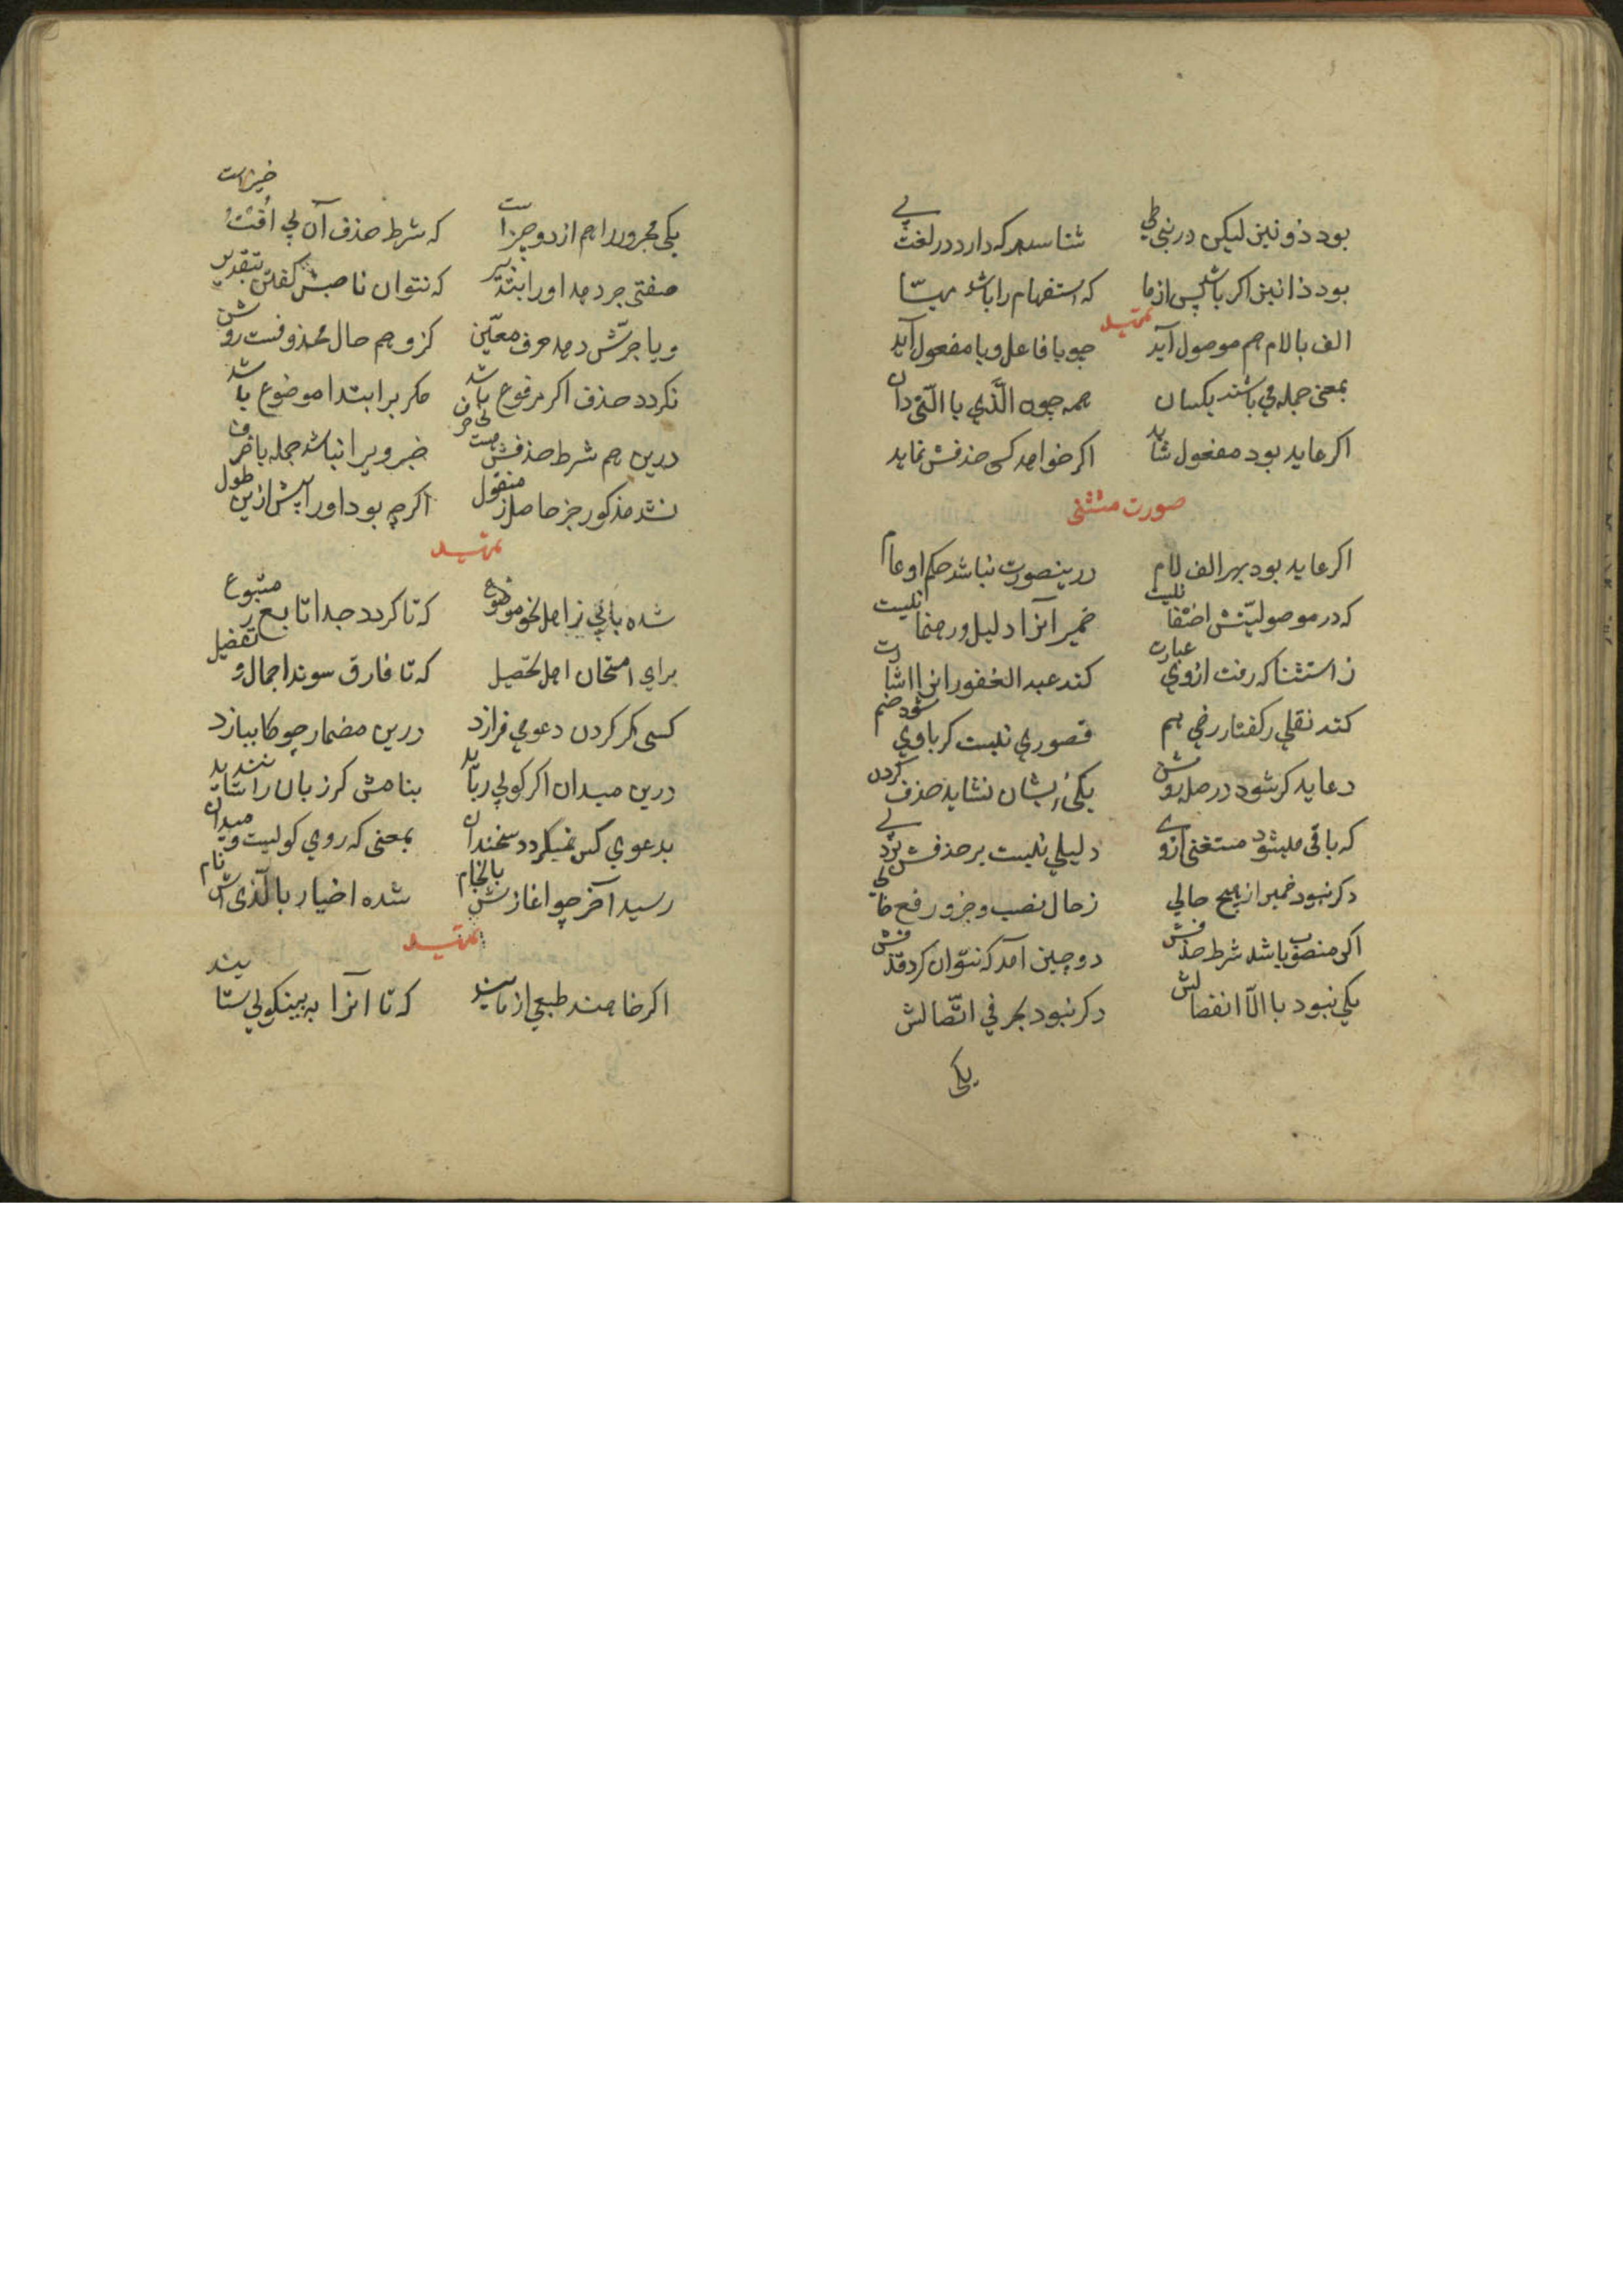 بود ذو نیز لیکن در بنی طی شناسد هر که دارد در لغت پی
بود ذا نیز اگر باشد پس از ما که استفهام را باشد مهیّا
تمهید
الف بالام هم موصول آید چو با فاعل و یا مفعول آید
بمعنی جمله می باشند یکسان همه چون الَّذی با الّتی دان
اگر عاید بود مفعول شاید اگر خواهد کسی حذفش نماید
صورت مستثنی
اگر عاید بود بهر الف لام درینصورت نباشد حکم او عام
که در موصولیّتش اختفا نیست ضمیر آنرا دلیل و رهنما نیست
ز استثنا که رفت ازوی عبارت کند عبد الغفور اینرا اشارت
کند نقلی ز گفتار رضی هم قصوری نیست گر باوی شود ضم
دو عاید گر شود در صله روشن یکی زیشان نشاید حذف کردن
که باقی میشود مستغنی ازوی دلیلی نیست بر حذفش برد پی
دگر نبود ضمیر از هیچ حالی ز حال نصب و جر و رفع خالی
اگر منصوب باشد شرط حذفش دو چیز آمد که نتوان کرد قذفش
یکی نبود با الّا انفصالش دگر نبود بحرفی اتّصالش
یکی
یکی مجرور را هم از دو چیز است که شرط حذف آن پی اُفت خیز است
صفتی جر دهد اورا بتذبیر که نتوان ناصبش گفتن بتقدیر
و یا جرّش دهد حرف معیّن کزو هم حال محذوفست روشن
نگردد حذف اگر مرفوع باشد مگر بر ابتدا موضوع باشد
درین هم شرط حذفش هست خبر ویرا نباشد جمله یا ظرف
نشد مذکور جز حاصل ز منقول اگر چه بود اورا پیش ازین طول
تمهید
شده بابی ز اهل نحو موضوع که تا گردد جدا تابع ز متبوع
برای امتحان اهل تحصیل که تا فارق شوند اجمال و تفضیل
کسی گر گردن دعوی فرازد درین مضمار چو گانی ببازد
درین میدان اگر گویی رباید بنامش گر زبان راند شاید
بدعوی کس نمیگردد سخندان بمعنی که روی گویست و میدان
رسید آخر چو اغازش بانجام شده اخبار بالّذی اش نام
تمهید
اگر خاهند طبعی از مایند که تا آنرا به بینکویی ستایند